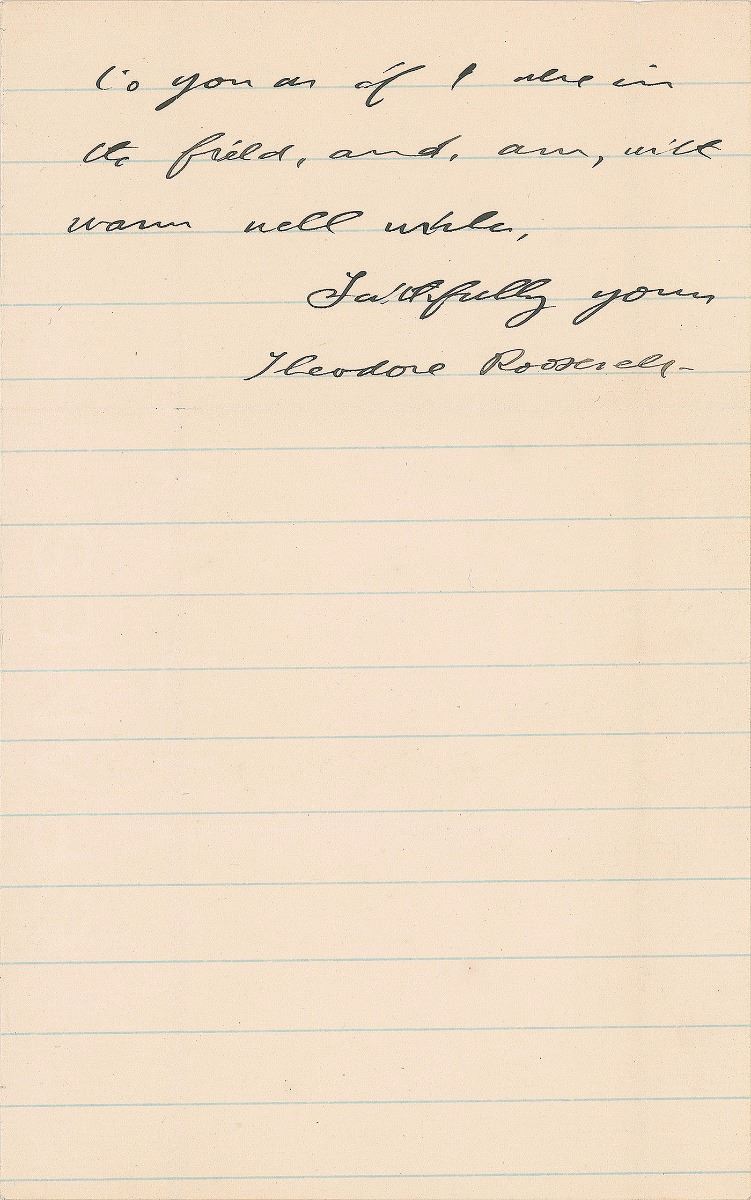 to you as if I were in
the field, and, am, with
warm well wishes,
Faithfully yours
Theodore Roosevelt